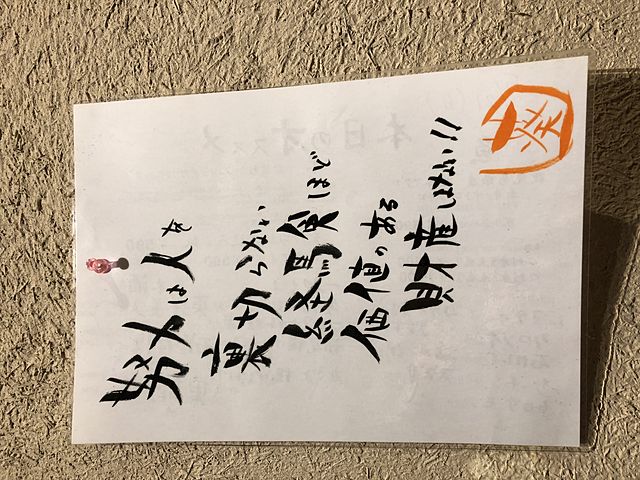 努力は人を
裏切らない
経験ほど
価値のある
財産はない!!